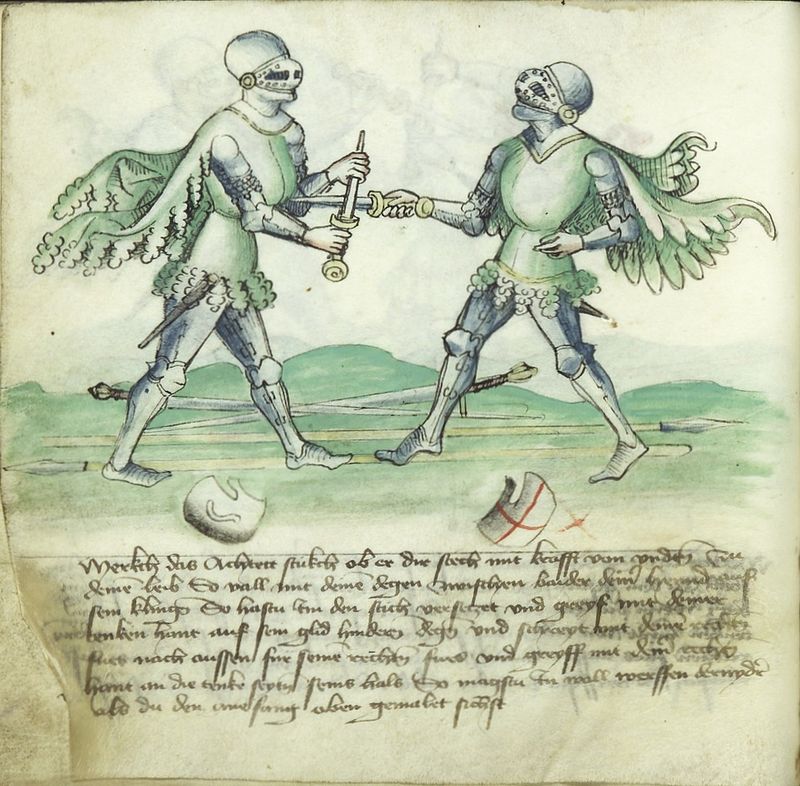 Merckh das Achtett stukch ob er dir stech mit krafft von vnden Inn
deinē leib So vall mit deinē degen zwischen baider dein hennd auf
sein kling So hastu Im den stich versetzt vnd greyf mit deiner
tenken hant auf sein glid hinderm degen vnd schreyt mit deinē rechten
fues nach aussen für seinē rechten fues vnd greyff mit dein rechten
hant an die tenke seytn seins hals So magstu In woll werffen dernyder
als du den anefang oben gemalet sichst